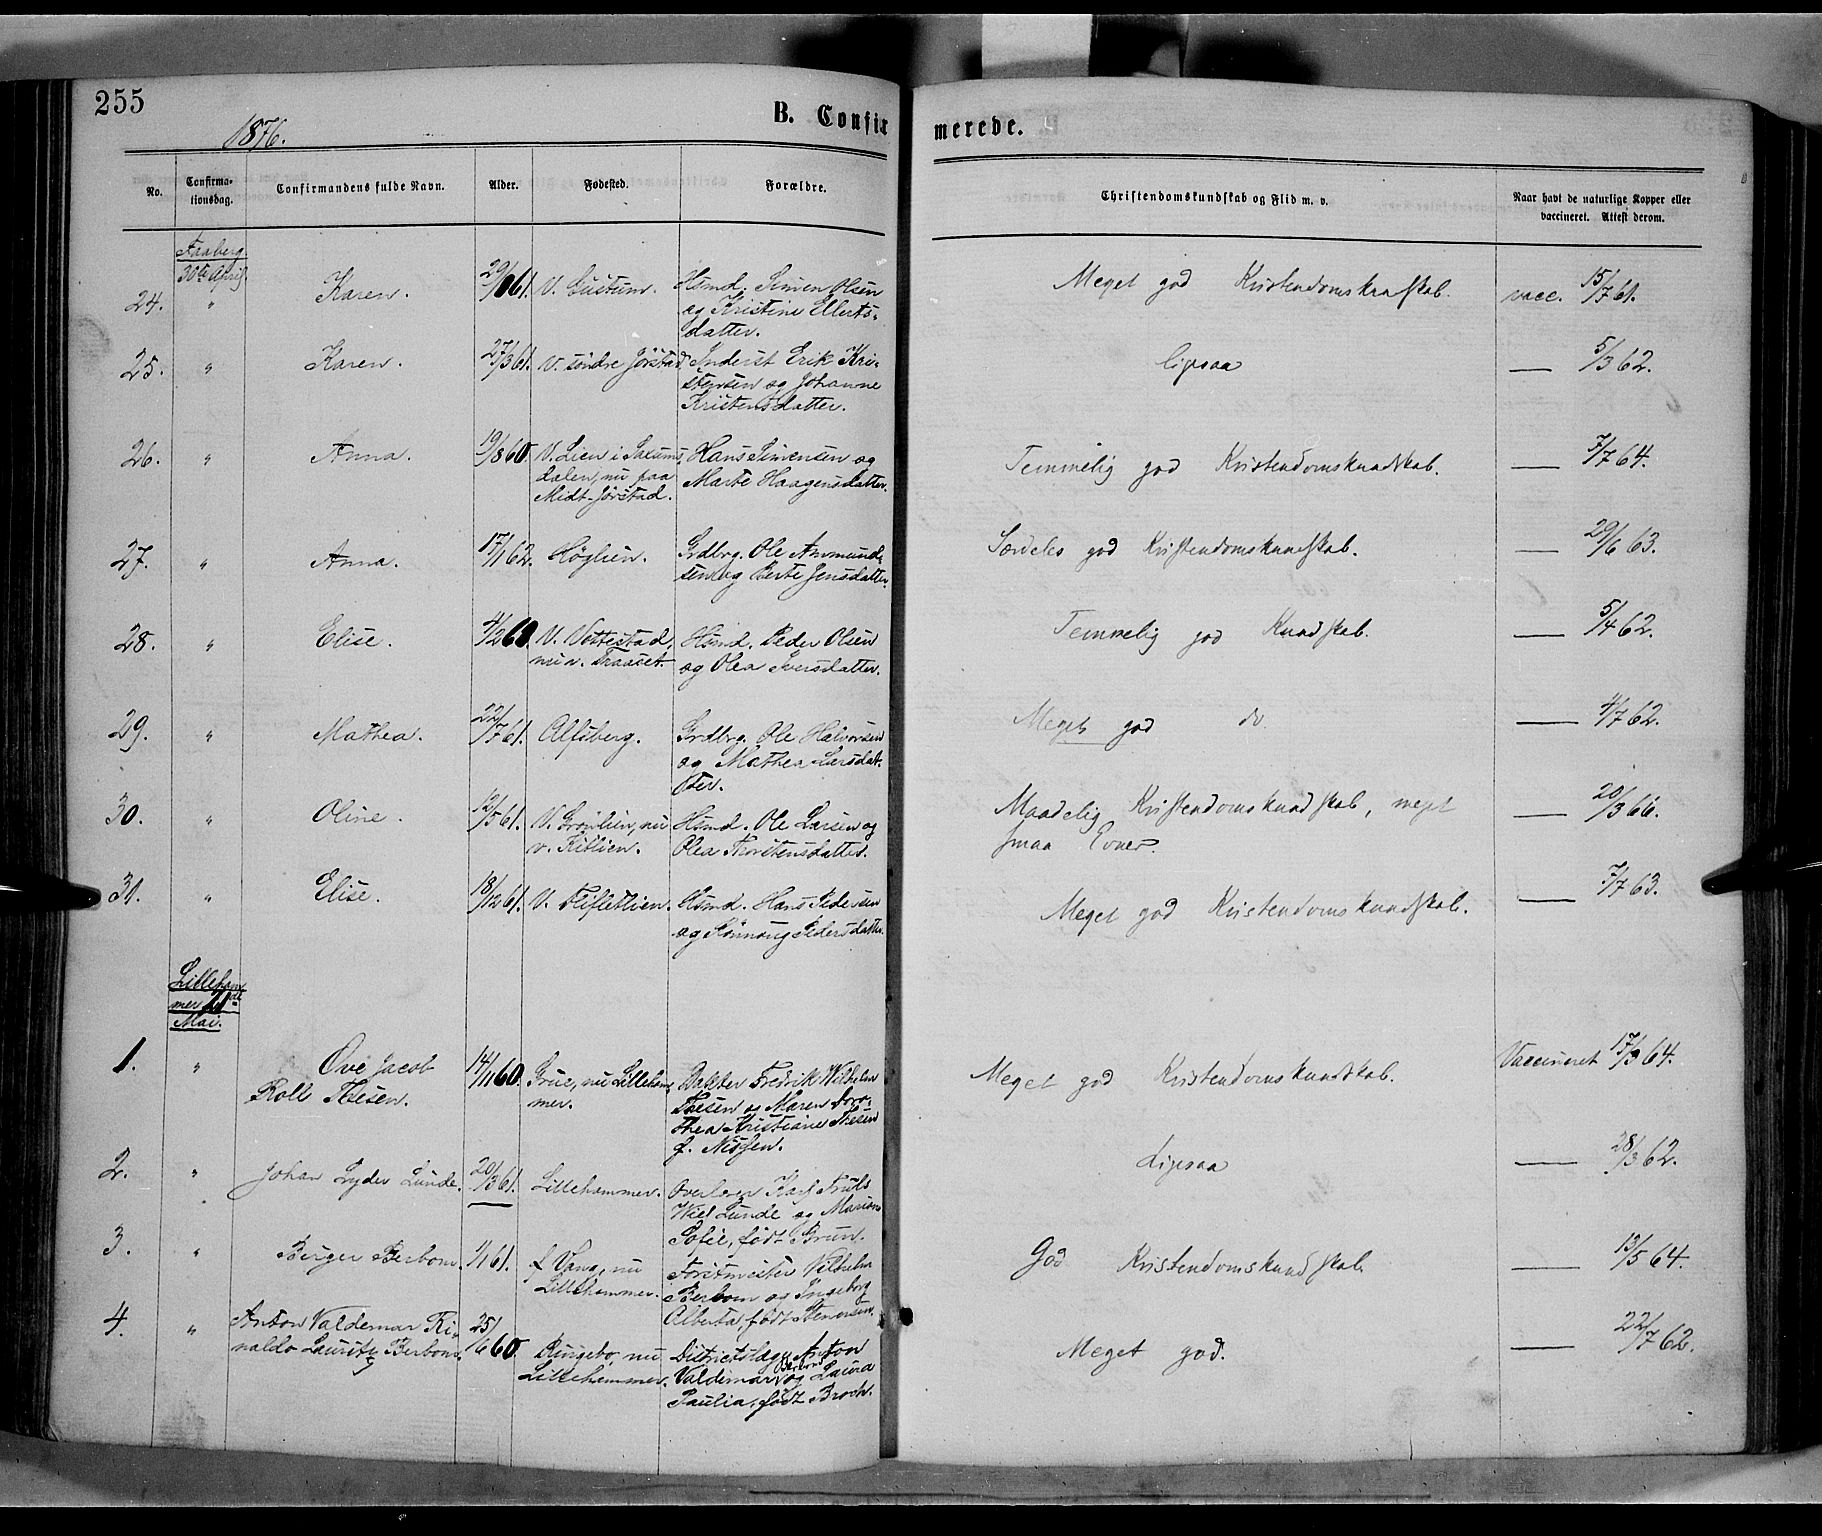 255
1876.
B. Confirmerede.
No.
Confirma-
tionsdag.
Confirmandens fulde Navn.
Alder.
Fødested.
Forældre.
Christendomskundskab og Flid m. v.
Naar havt de naturlige Kopper eller
vaccineret. Attest derom.
Faaberg
30te April.
24. " Karen. 61. V. Hsmd. Simen Olsen
og Kristine Ellerts-
datter.
Meget god Kristendomskundskab. vacc. 15/7 61.
25. " Karen. 27/3 61. V. søndre Jørstad. Inderst Erik Kri-
stensen og Johanne
Kristensdatter.
Ligesaa — 5/3 62.
26. " Anna. 19/8 60. V. Lien i Saxums-
dalen, nu paa
Midt-Jørstad.
Hans Simensen og
Marte Haagensdatter.
Temmelig god Kristendomskundskab. — 7/7 64.
27. " Anna. 17/1 62. Høglien. Grdbrg. Ole Ammund-
sen og Berte Jensdatter.
Særdeles god Kristendomskundskab. — 29/6 63.
28. " Elise. 4/2 60. V. Vottestad,
nu v. Traaset.
Hsmd. Peder Olsen
og Olea Iversdatter.
Temmelig god Kundskab. — 5/4 62.
29. " Mathea. 22/7 61. Alfsberg. Grdbrg. Ole Halvorsen
og Mathea Larsdat-
ter.
Meget god do — 4/7 62.
30. " Oline. 12/5 61. V. nu
v. Kiblien.
Hsmd. Ole Larsen og
Olea Thorstensdatter.
Maadelig Kristendomskundskab, meget
smaa Evner.
— 20/3 66.
31. " Elise. 18/12 61. V. Hsmd. Hans Pedersen
og Rønnoug Pedersdatter.
Meget god Kristendomskundskab. — 7/7 63.
Lilleham-
mer 21de
Mai.
1. " Ove Jacob
Roll Thesen.
14/11 60. Grue, nu Lilleham-
mer.
Dokter Fredrik Wilhelm
Thesen og Maren Doro-
thea Kristiane Thesen
f. Nissen.
Meget god Kristendomskundskab. Vaccineret 17/3 64.
2. " Johan Lyder Lunde. 20/3 61. Lillehammer. Overlærer Karl Truls
Wiel Lunde og Marion
Sofie, født Bruun.
Ligesaa — 28/3 62.
3. " Birger Berbom. 1/1 61. f. Vang, nu
Lillehammer.
Forstmester Vilhelm
Berbom og Ingeborg
Alberta, født Stenersen.
God Kristendomskundskab — 13/5 64.
4. " Anton Valdemar Ri-
naldo Lauritz Berbom.
25/6 60. Ringebo, nu
Lillehammer.
Districtslæge Anton
Valdemar Berbom og Laura
Paulia, født Broch.
Meget god. — 22/7 62.